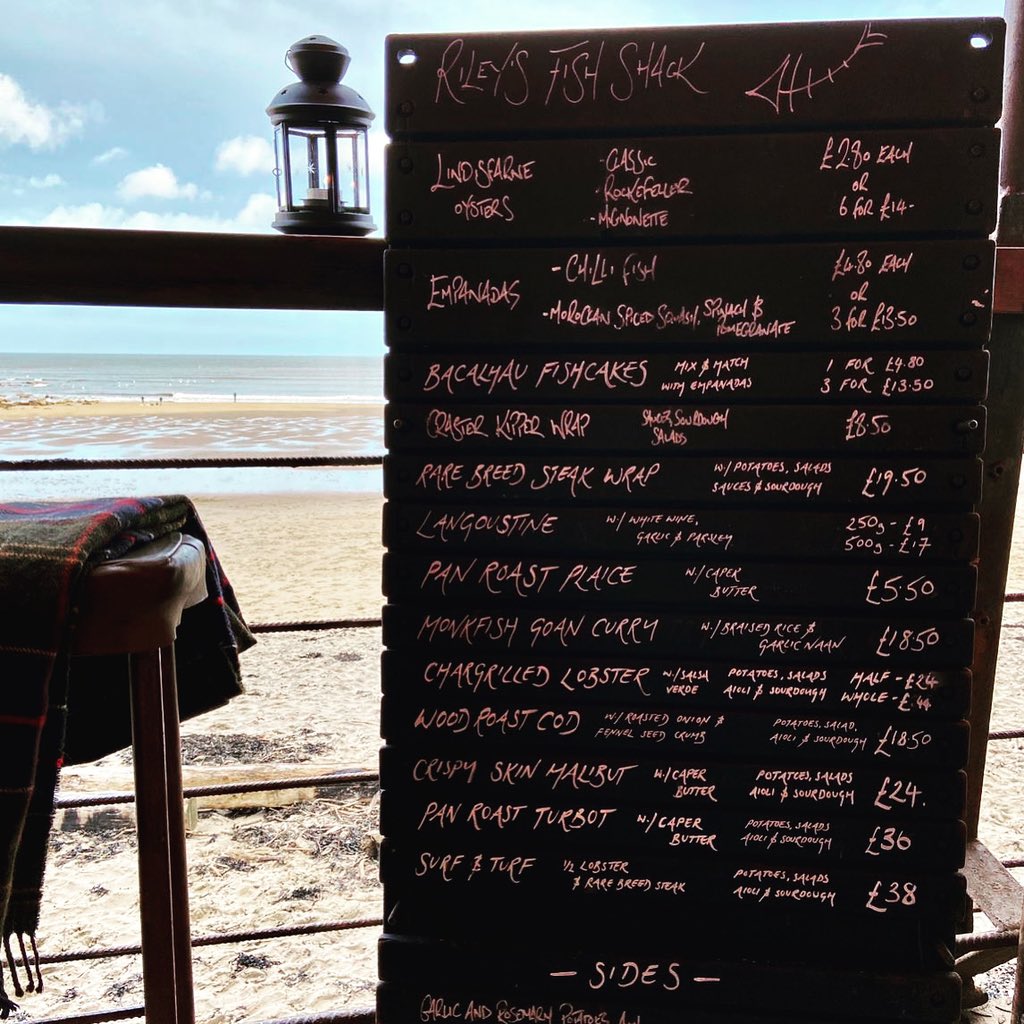 RILEY'S FISH SHACK
LINDISFARNE OYSTERS - CLASSIC - ROCKEFELLER - MIGNONETTE £2.80 EACH OR 6 FOR £14-
EMPANADAS - CHILLI FISH - MOROCCAN SPICED SQUASH, SPINACH & POMEGRANATE £4.80 EACH OR 3 FOR £13.50
BACALHAU FISHCAKES MIX & MATCH WITH EMPANADAS 1 FOR £4.80 3 FOR £13.50
CRASTER KIPPER WRAP SAUCES, SOURDOUGH SALADS £8.50
RARE BREED STEAK WRAP W/ POTATOES, SALADS SAUCES & SOURDOUGH £19.50
LANGOUSTINE W/ WHITE WINE, GARLIC & PARSLEY 250g - £9 500g - £17
PAN ROAST PLAICE W/ CAPER BUTTER £5.50
MONKFISH GOAN CURRY W/ BRAISED RICE & GARLIC NAAN £18.50
CHARGRILLED LOBSTER W/ SALSA VERDE POTATOES, SALADS AIOLI & SOURDOUGH HALF - £24 WHOLE - £44
WOOD ROAST COD W/ ROASTED ONION & FENNEL SEED CRUMB POTATOES, SALAD, AIOLI & SOURDOUGH £18.50
CRISPY SKIN HALIBUT W/ CAPER BUTTER POTATOES, SALADS AIOLI & SOURDOUGH £24.
PAN ROAST TURBOT W/ CAPER BUTTER POTATOES, SALADS AIOLI & SOURDOUGH £36
SURF & TURF 1/2 LOBSTER & RARE BREED STEAK POTATOES, SALADS AIOLI & SOURDOUGH £38
- SIDES -
GARLIC AND ROSEMARY POTATOES